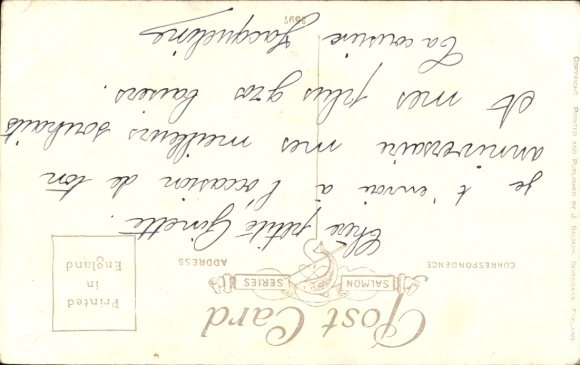 Post Card
SALMON SERIES
CORRESPONDENCE
ADDRESS
Printed
in
England
Chère petite Ginette.
je t'envoi à l'occasion de ton
anniversaire mes meilleurs souhaits
et mes plus gros baisers.
Ta cousine
Jacqueline
COPYRIGHT. PRINTED AND PUBLISHED BY J. SALMON SEVENOAKS, ENGLAND